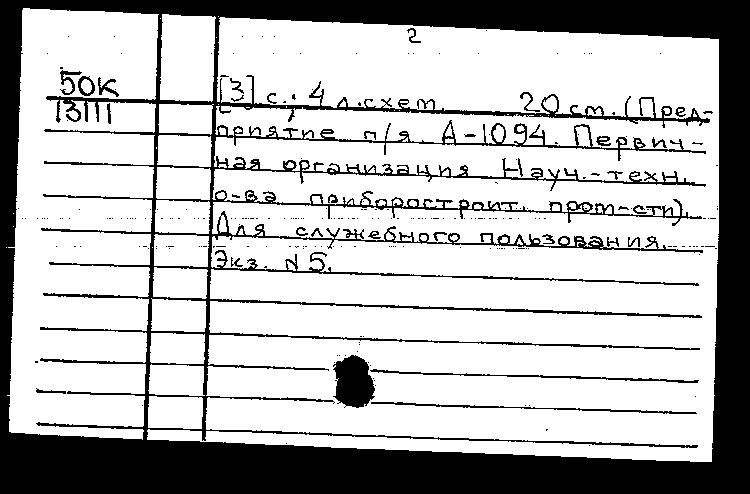 2
50К
13111
[3] с.; 4 л.схем. 20 см. (Пред-
приятие п/я А-1094. Первич-
ная организация Науч.-техн.
о-ва приборостроит. пром-сти).
Для служебного пользования.
Экз. N 5.